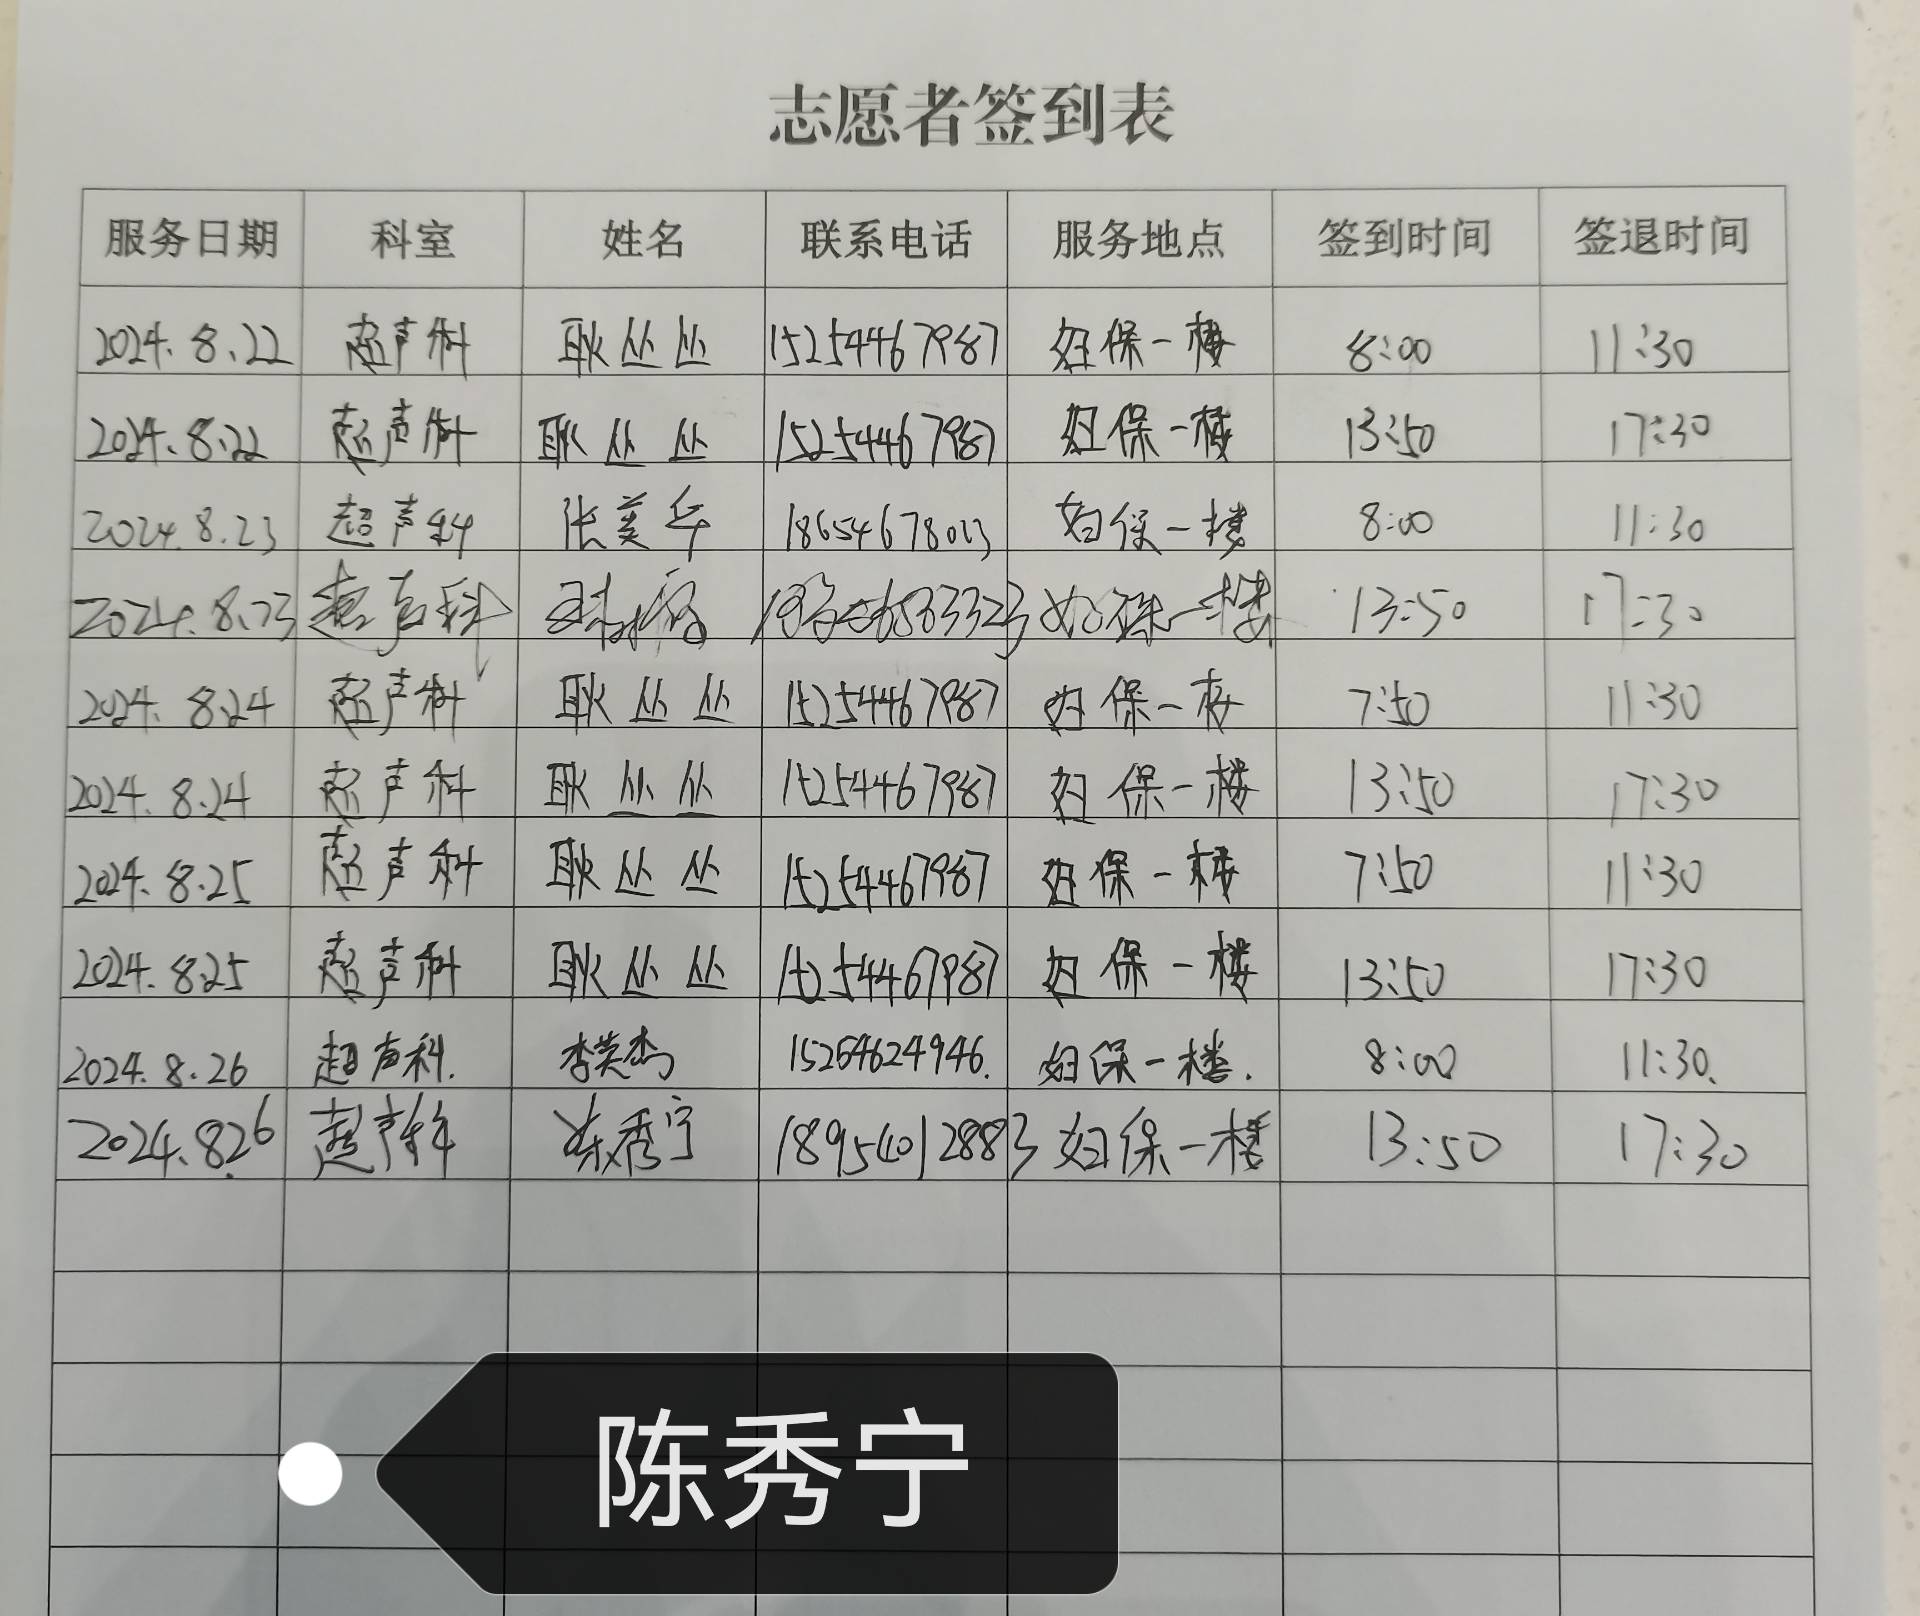 志愿者签到表
服务日期 科室 姓名 联系电话 服务地点 签到时间 签退时间
2024.8.22 超声科 耿丛丛 15254467987 妇保一楼 8:00 11:30
2024.8.22 超声科 耿丛丛 15254467987 妇保一楼 13:50 17:30
2024.8.23 超声科 张美 妇保一楼 8:00 11:30
2024.8.23 超声科 妇保一楼 13:50 17:30
2024.8.24 超声科 耿丛丛 15254467987 妇保一楼 7:50 11:30
2024.8.24 超声科 耿丛丛 15254467987 妇保一楼 13:50 17:30
2024.8.25 超声科 耿丛丛 15254467987 妇保一楼 7:50 11:30
2024.8.25 超声科 耿丛丛 15254467987 妇保一楼 13:50 17:30
2024.8.26 超声科. 李英杰 15264624946. 妇保一楼. 8:00 11:30.
2024.8.26 超声科 陈秀宁 18954012883 妇保一楼 13:50 17:30
陈秀宁